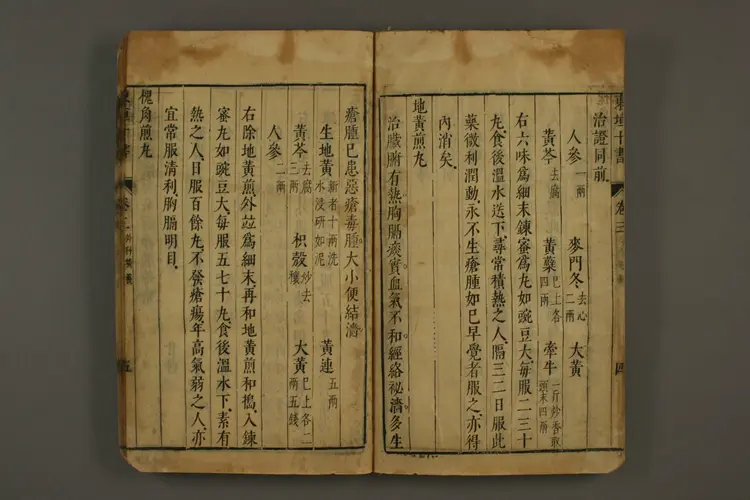 東垣十書 卷三 四
治證同前
人參一兩 麥門冬去心二兩 大黃
黃芩去腐 黃蘗已上各四兩 牽牛一斤炒香取頭末四兩
右六味爲細末鍊蜜爲丸如豌豆大每服二三十
丸食後溫水送下尋常積熱之人隔三二日服此
藥微利潤動永不生瘡腫如已早覺者服之亦得
內消矣
地黃煎丸
治臟腑有熱胸膈痰實血氣不和經絡祕澁多生
瘡腫已患惡瘡毒腫大小便結澁
生地黃新者十兩洗水浸硏如泥 黃連五兩
黃芩去腐三兩 枳殼炒去穰 大黃已上各二兩五錢
人參二兩
右除地黃煎外並爲細末再和地黃煎和搗入鍊
蜜丸如豌豆大每服五七十丸食後溫水下素有
熱之人日服百餘丸不發瘡瘍年高氣弱之人亦
宜常服淸利胸膈明目
槐角煎丸
五